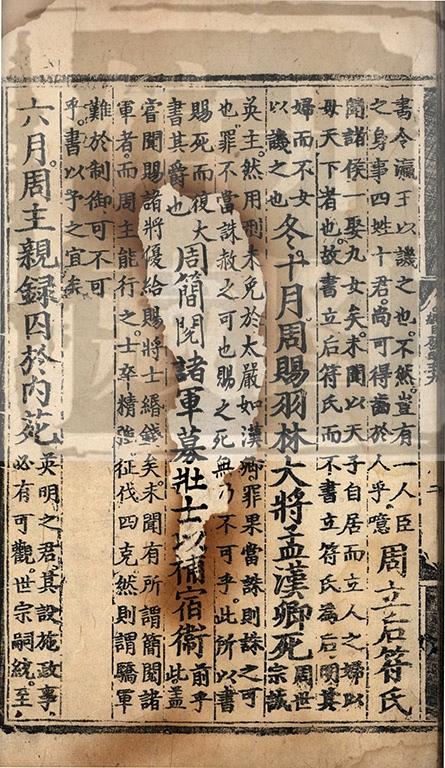 書令瀛王以譏之也不然豈有一人臣
之身事四姓十君尚可得齒於人乎噫
周立后符氏
聞諸侯一娶九女矣未聞以天子自居而立人之婦以
母天下者也故書立后符氏而不書立符氏為后明其
婦而不女
以譏之也
冬十月周賜羽林大將孟漢卿死
周世
宗誠
英主然用刑未免於太嚴如漢卿罪果當誅則誅之可
也罪不當誅赦之可也賜之死無乃不可乎此所以書
賜死而復大
書其爵也
周簡閱諸軍募壯士以補宿衛
前乎
此蓋
嘗聞賜諸將優給賜將士緡錢矣未聞有所謂簡閱諸
軍者而周主能行之士卒精強征伐四克然則謂驕軍
難於制御可不可
乎書以予之宜矣
六月周主親録囚於內苑
英明之君其設施政事
必有可觀世宗嗣統至